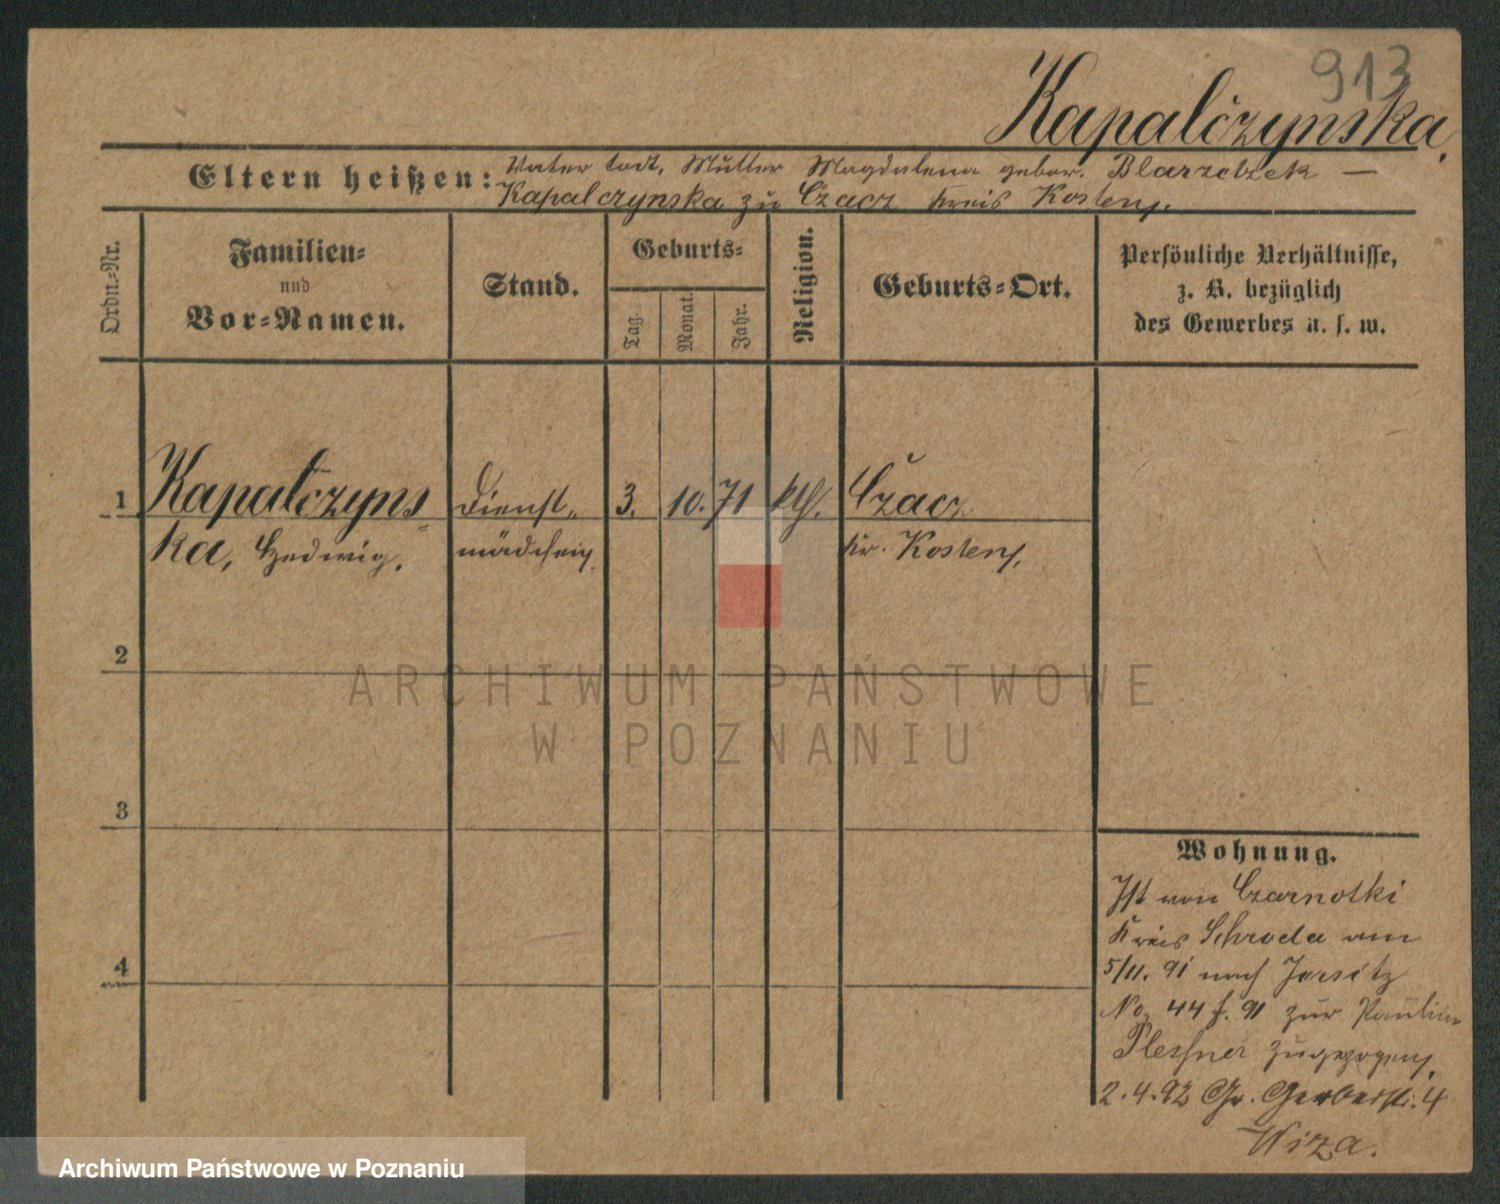 913
Kapalczynska
Eltern heißen: Vater todt, Mutter Magdalena gebor.
Kapalczynska zu Czacz Kreis Kosten,
Ordn.-Nr.
Familien-
und
Vor-Namen.
Stand.
Geburts-
Tag.
Monat.
Jahr.
Religion.
Geburts-Ort.
Persönliche Verhältnisse,
z. B. bezüglich
des Gewerbes u. s. w.
1 Kapalczyns Dienst- 3. 10. 71 kth. Czacz
ka, Hedwig. mädchen Kr. Kosten,
2
3
4
Wohnung.
Ist von Czarnotki
Kreis Schroda am
5/11. 91 nach Jersitz
No. 44 f. 91 zur Pauline
Plessner zugezogen,
2.4.92 Gr. Gerberstr. 4
Wiza.
ARCHIWUM PAŃSTWOWE
W POZNANIU
Archiwum Państwowe w Poznaniu